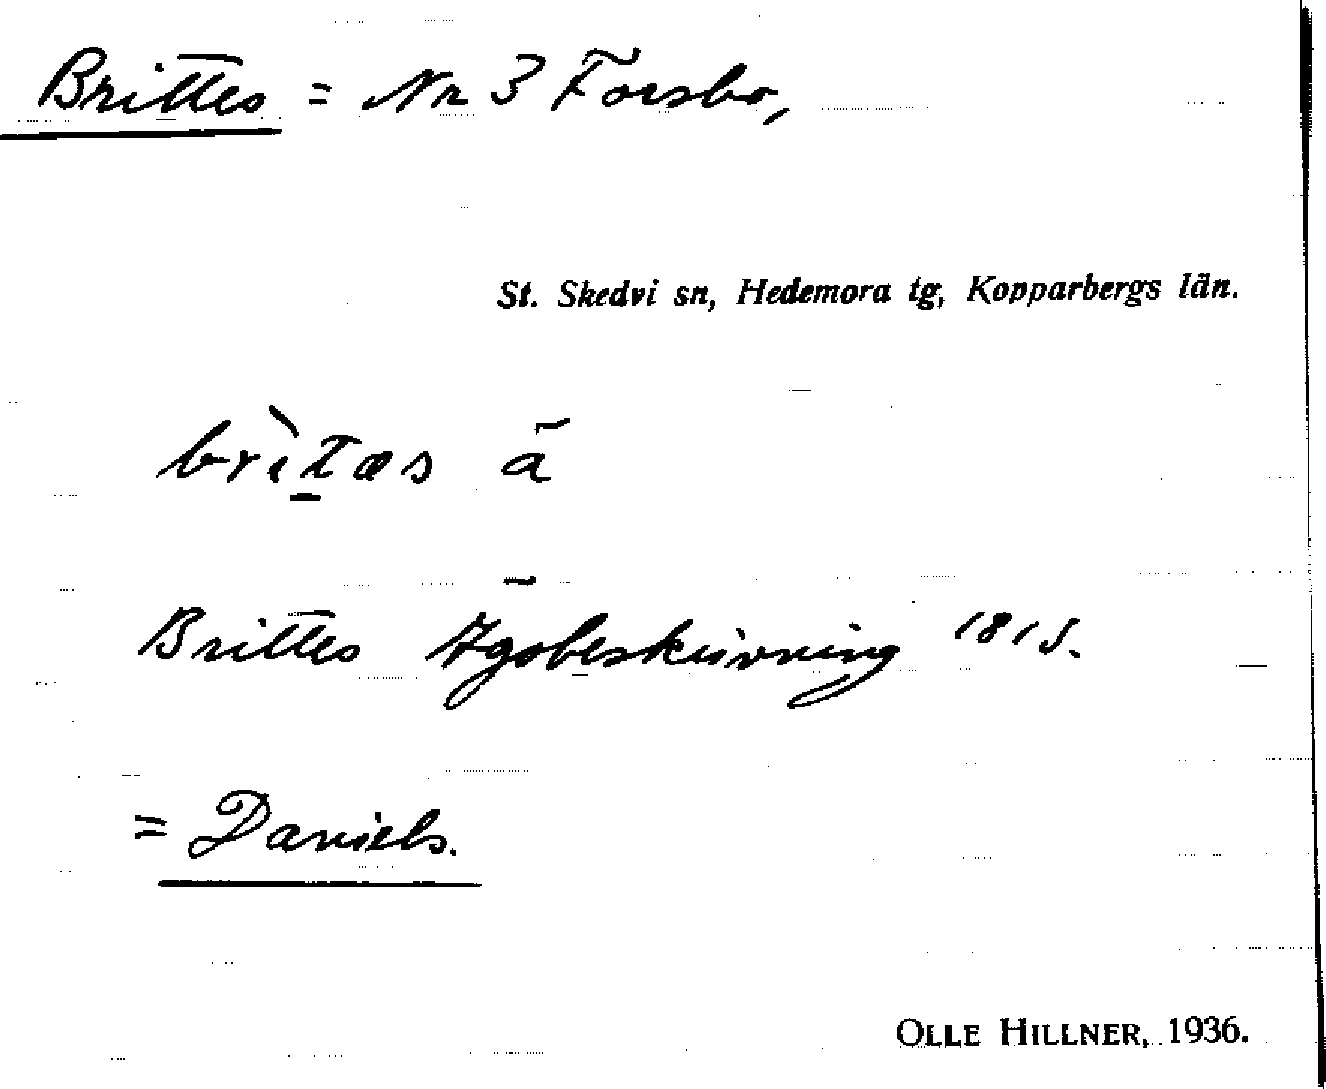 Brittes = Nr 3 Forsbo,
St. Skedvi sn, Hedemora tg, Kopparbergs län.
brìt̲æs ā
Brittes Ägobeskrivning 1815.
= Daniels.
OLLE HILLNER, 1936.